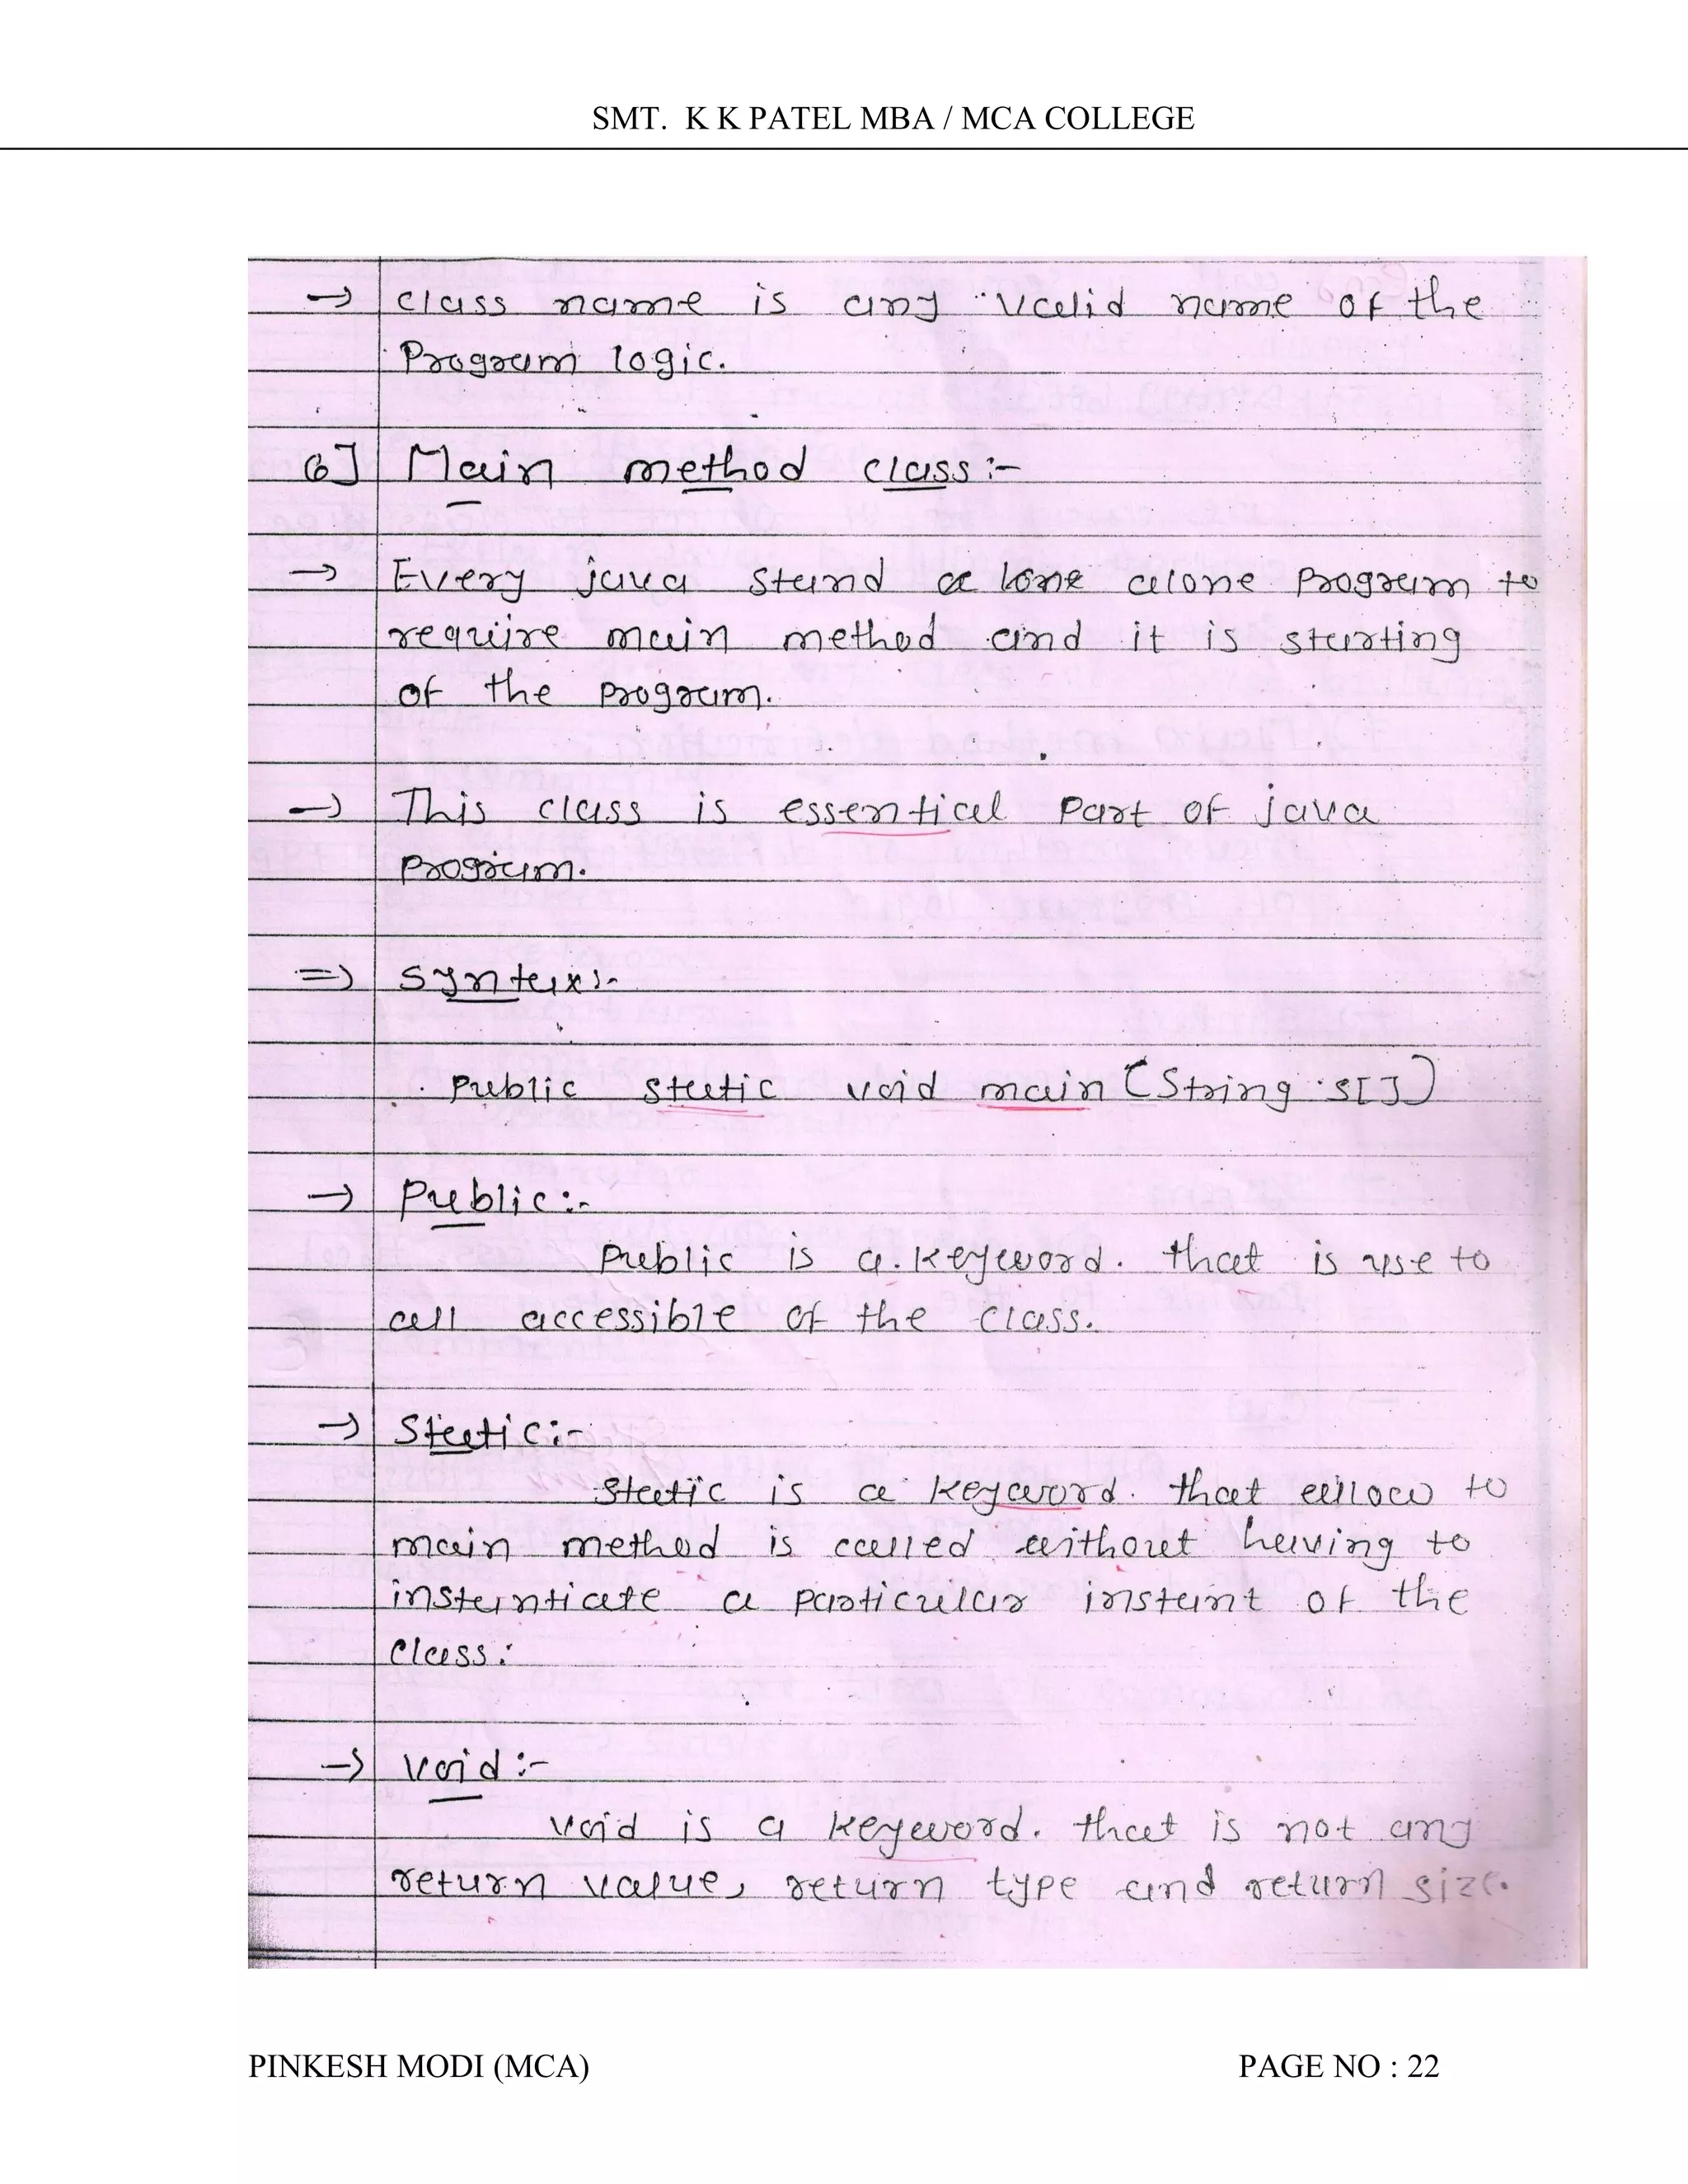 SMT. K K PATEL MBA / MCA COLLEGE
→ class name is any valid name of the
Program logic.
6] Main method class:-
→ Every java stand a lone alone program to
require main method and it is starting
of the program.
→ This class is essential part of java
program.
⇒ Syntax:-
Public static void main (String s[])
→ Public:-
Public is a keyword. that is use to
all accessible of the class.
→ Static:-
Static is a keyword. that allow to
main method is called without having to
instantiate a particular instant of the
class.
→ Void:-
Void is a keyword. that is not any
return value, return type and return size.
PINKESH MODI (MCA) PAGE NO : 22